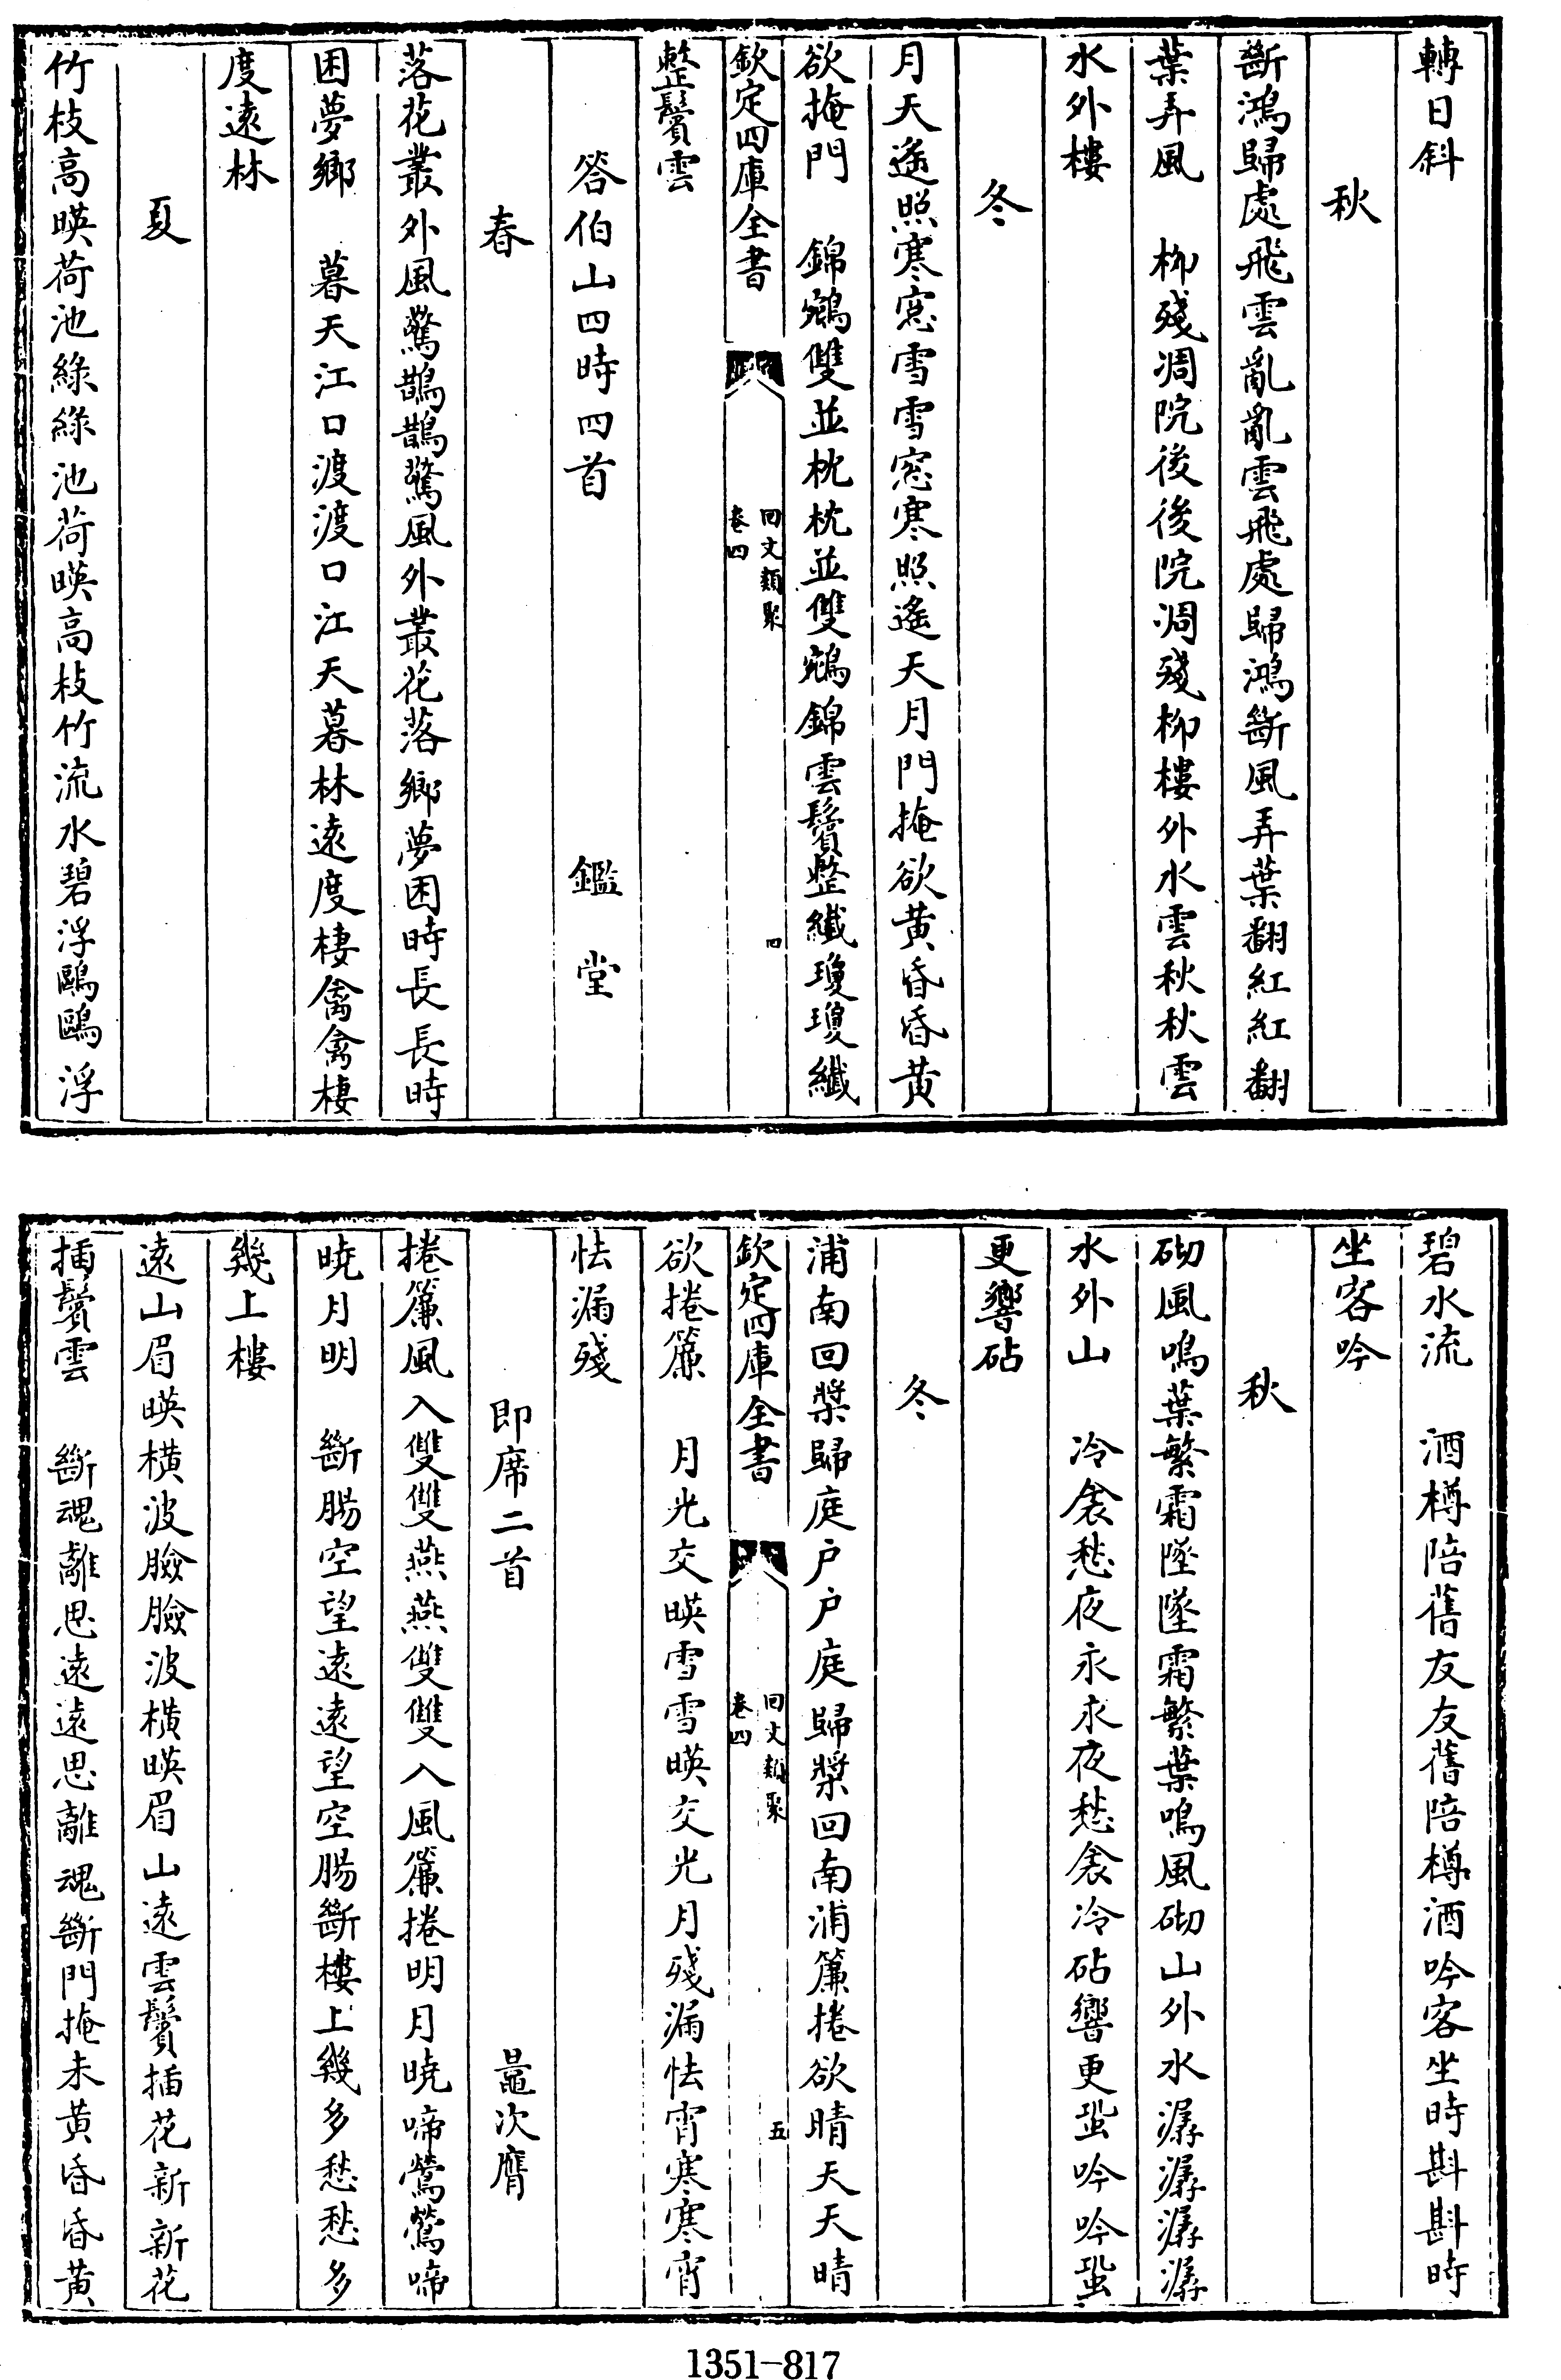 轉日斜
秋
斷鴻歸處飛雲亂亂雲飛處歸鴻斷風弄葉翻紅紅翻
葉弄風　柳殘凋院後後院凋殘柳樓外水雲秋秋雲
水外樓
冬
月天遙照寒窓雪雪窓寒照遙天月門掩欲黄昏昏黄
欲掩門　錦鵷雙並枕枕並雙鵷錦雲鬢整纖瓊瓊纖
欽定四庫全書
回文類聚
卷四
四
整鬢雲
答伯山四時四首　鑑堂
春
落花叢外風驚鵲鵲驚風外叢花落鄉夢困時長長時
困夢鄉　暮天江口渡渡口江天暮林遠度棲禽禽棲
度遠林
夏
竹枝高暎荷池綠綠池荷暎高枝竹流水碧浮鷗鷗浮
碧水流　酒樽陪舊友友舊陪樽酒吟客坐時斟斟時
坐客吟
秋
砌風鳴葉繁霜墜墜霜繁葉鳴風砌山外水潺潺潺潺
水外山　冷衾愁夜永永夜愁衾冷砧響更蛩吟吟蛩
更響砧
冬
浦南回槳歸庭戶戶庭歸槳回南浦簾捲欲晴天天晴
欽定四庫全書
回文類聚
卷四
五
欲捲簾　月光交暎雪雪暎交光月殘漏怯宵寒寒宵
怯漏殘
即席二首　鼂次膺
捲簾風入雙雙燕燕雙雙入風簾捲明月曉啼鶯鶯啼
曉月明　斷腸空望遠遠望空腸斷樓上幾多愁愁多
幾上樓
遠山眉暎橫波臉臉波橫暎眉山遠雲鬢插花新新花
插鬢雲　斷魂離思遠遠思離魂斷門掩未黄昏昏黄
1351-817